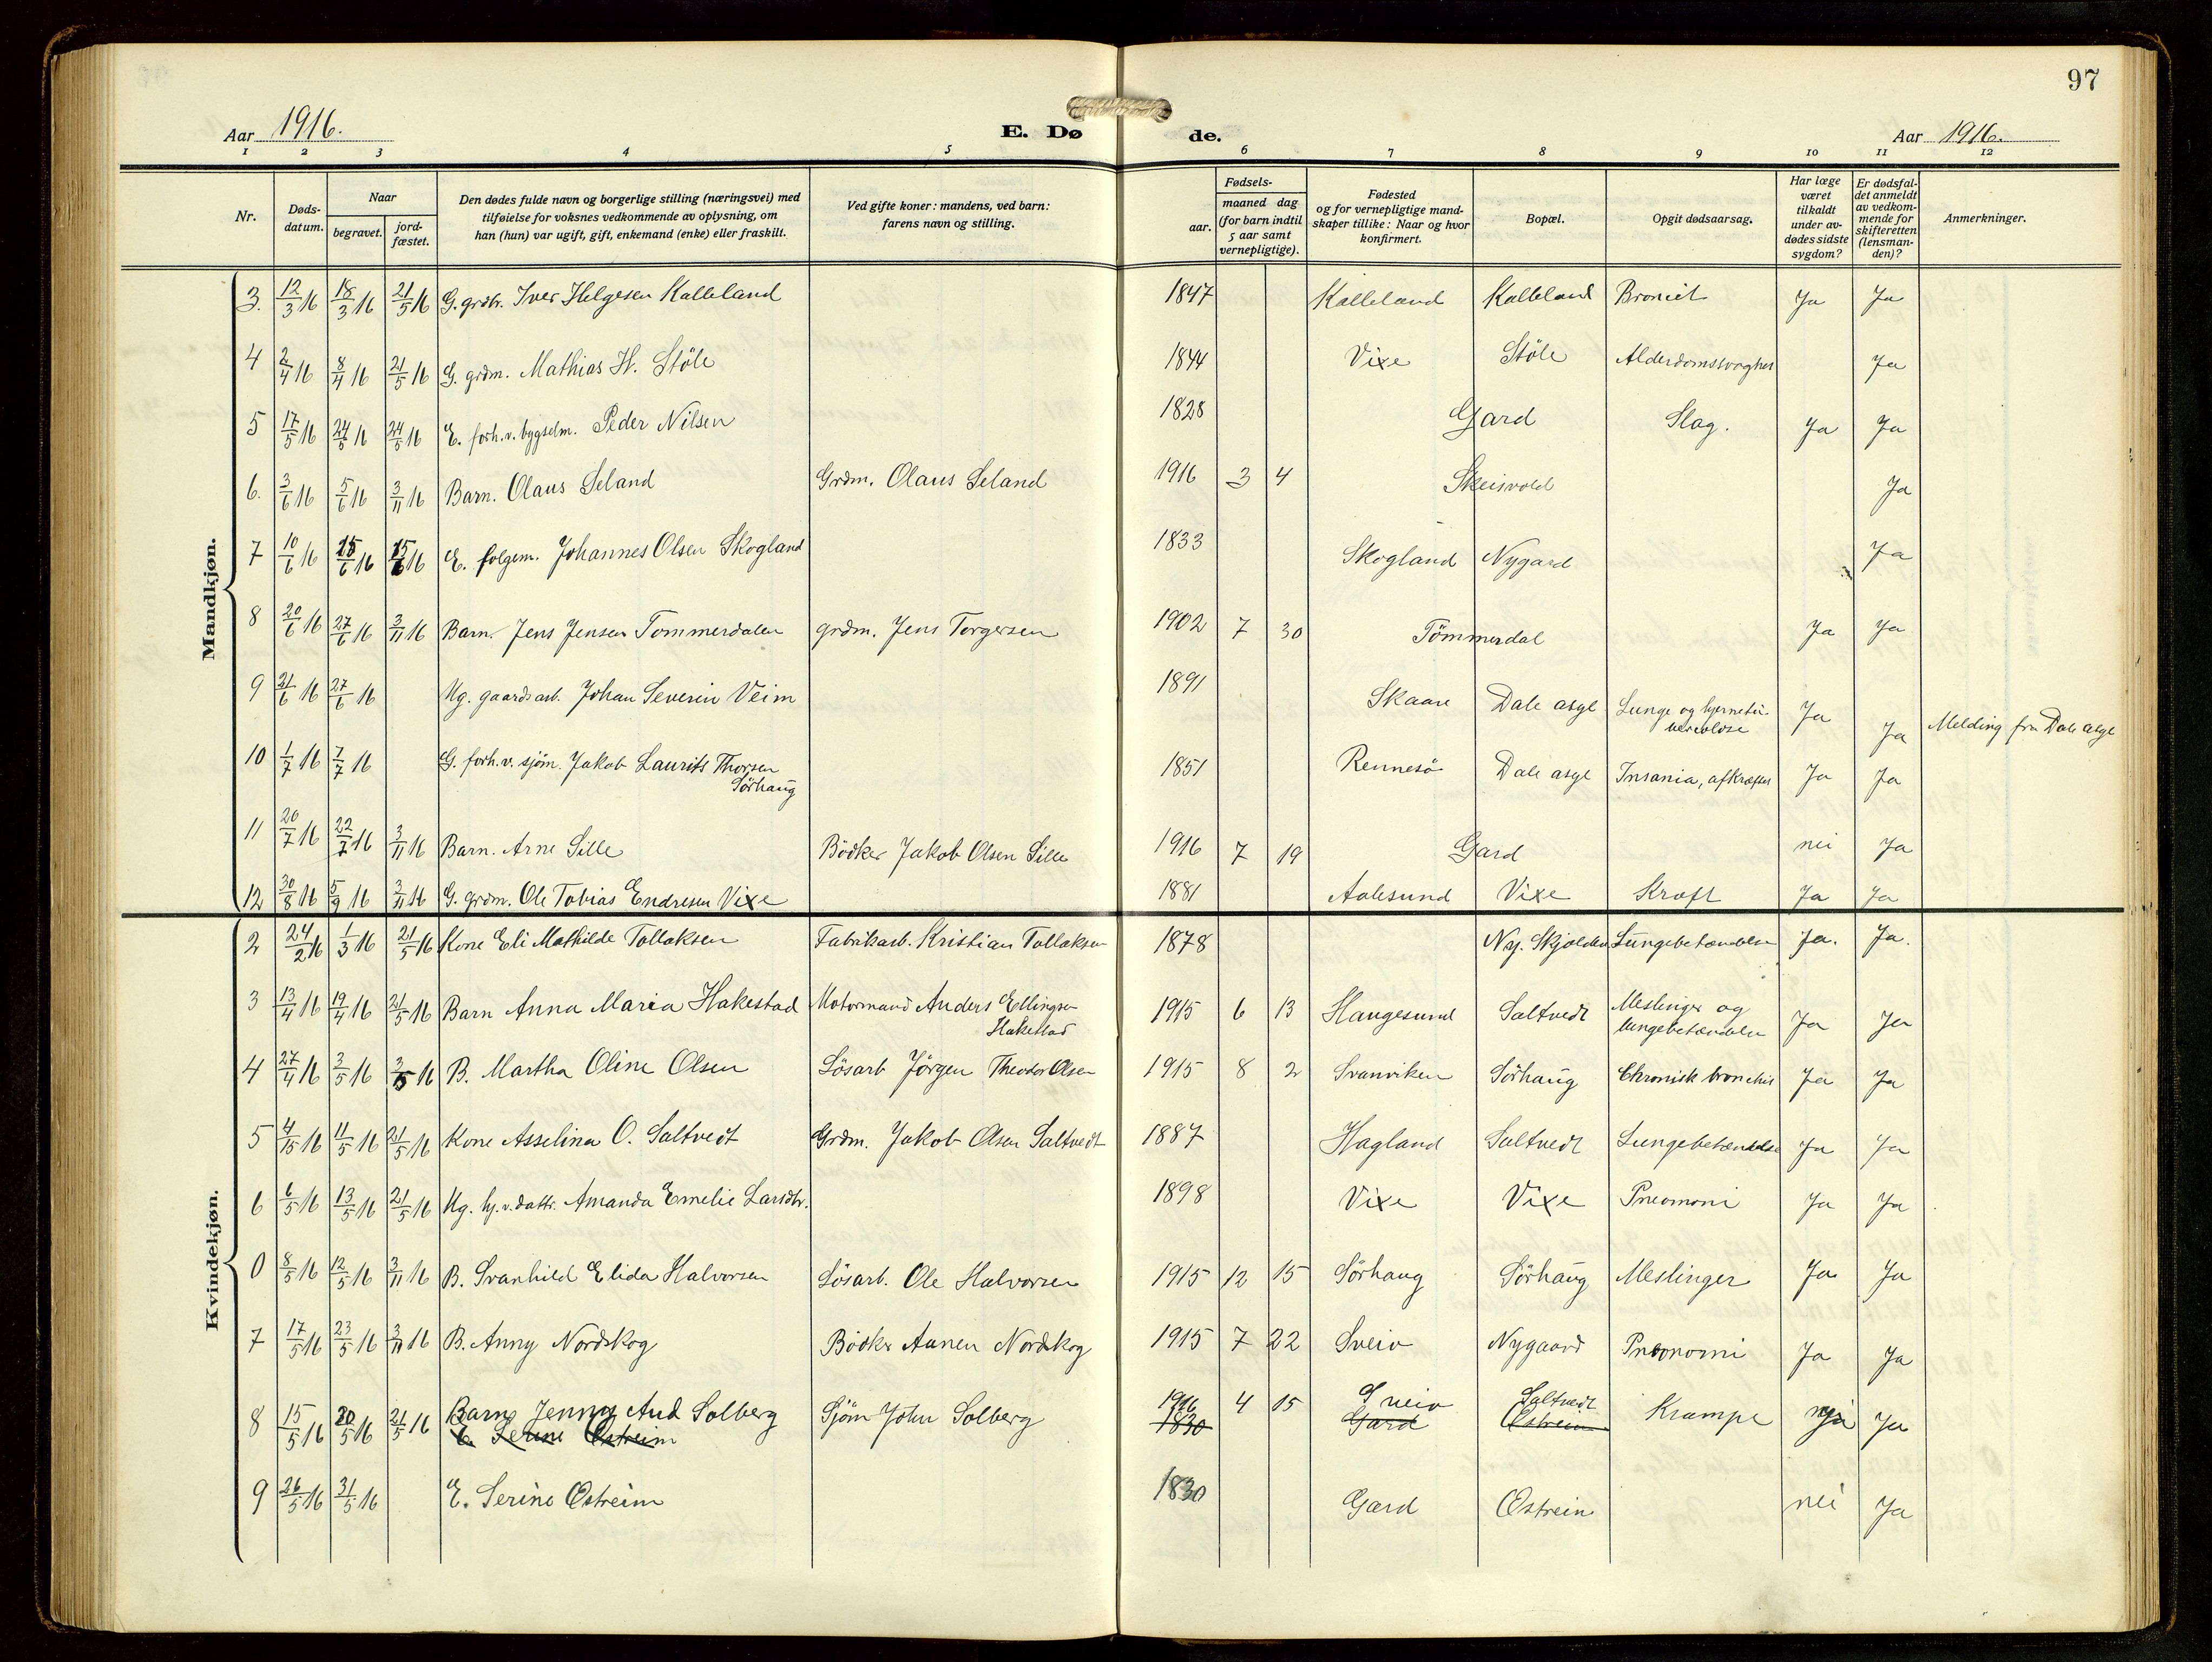 97
Aar 1916.
E. Dø de.
Aar 1916.
1 2 3 4 5 6 7 8 9 10 11 12
Nr.
Døds-
datum.
Naar
begravet.
jord-
fæstet.
Den dødes fulde navn og borgerlige stilling (næringsvei) med
tilføielse for voksnes vedkommende av oplysning, om
han (hun) var ugift, gift, enkemand (enke) eller fraskilt.
Ved gifte koner: mandens, ved barn:
farens navn og stilling.
Fødsels-
aar.
maaned dag
(for barn indtil
5 aar samt
vernepligtige).
Fødested
og for vernepligtige mand-
skaper tillike: Naar og hvor
konfirmert.
Bopæl.
Opgit dødsaarsag.
Har læge
været
tilkaldt
under av-
dødes sidste
sygdom?
Er dødsfal-
det anmeldt
av vedkom-
mende for
skifteretten
(lensman-
den)?
Anmerkninger.
Mandkjøn.
3. 12/3 16 18/3 16 21/5 16 G. grdbr. Iver Helgesen Kalleland 1847 Kalleland Kalleland Broncit Ja Ja
4 2/4 16 8/4 16 21/5 16 G. grdm. Mathias H. Støle 1844 Vixe Støle Alderdomssvaghet Ja
5 17/5 16 24/5 16 24/5 16 E. forh.v. bygselm. Peder Nilsen 1828 Gard Slag. Ja Ja
6. 3/6 16 5/6 16 3/11 16 Barn. Olaus Seland Grdm. Olaus Seland 1916 3 4 Skeisvold Ja
7 10/6 16 15/6 16 15/6 16 E. folgem. Johannes Olsen Skogland 1833 Skogland Nygard Ja
8 20/6 16 27/6 16 3/11 16 Barn. Jens Jensen Tommerdalen grdm. Jens Torgersen 1902 7 30 Tömmerdal Ja Ja
9 21/6 16 27/6 16 Ug. gaardsarb. Johan Severin Veim 1891 Skaare Dale asyl Lunge og hjernetu-
berculose Ja Ja Melding fra Dale asyl
10 1/7 16 7/7 16 G. forh.v. sjøm. Jakob Laurits Thorsen
Sørhaug 1851 Rennesö Dale asyl Insania, afkræftet Ja Ja
11 20/7 16 22/7 16 3/11 16 Barn. Arne Sille Bödker Jakob Olsen Sille 1916 7 19 Gard nei Ja
12 30/8 16 5/9 16 3/11 16 G. grdm. Ole Tobias Endresen Vixe 1881 Aalesund Vixe Kræft Ja Ja
Kvindekjøn.
2 24/2 16 1/3 16 21/5 16 Kone Eli Mathilde Tollaksen Fabrikarb. Kristian Tollaksen 1878 Ny. Skjolden Lungebetændelse Ja. Ja.
3 13/4 16 19/4 16 21/5 16 Barn Anna Maria Hakestad Motormand Anders Ellingsen
Hakestad 1915 6 13 Haugesund Saltvedt Meslinger og
lungebetændelse Ja Ja
4 27/4 16 3/5 16 3/5 16 B. Martha Oline Olsen Lösarb Jörgen Theodor Olsen 1915 8 2 Svanviken Sörhaug Chronisk bronchit Ja Ja
5 4/5 16 11/5 16 21/5 16 Kone Asselina O. Saltvedt Grdm. Jakob Olsen Saltvedt 1887 Hagland Saltvedt Lungebetændelse Ja Ja
6 6/5 16 13/5 16 21/5 16 Ug. hj.v.dattr. Amanda Emelie Larsdtr. 1898 Vixe Vixe Pneomoni Ja Ja
0 8/5 16 12/5 16 3/11 16 B. Svanhild Elida Halvorsen Lösarb. Ole Halvorsen 1915 12 15 Sörhaug Sörhaug Meslinger Ja Ja
7 17/5 16 23/5 16 3/11 16 B. Anny Nordskog Bödker Aanen Nordskog 1915 7 22 Sveio Nygaard Pneonomi Ja Ja
8 15/5 16 20/5 16 21/5 16 Barn Jenny Aud Solberg Sjöm John Solberg 1916 4 15 Sveio Saltvedt Krampe nei Ja
E. Serine Østreim 1830 Gard Østrein
9 26/5 16 31/5 16 E. Serine Østreim 1830 Gard Østrein nei Ja